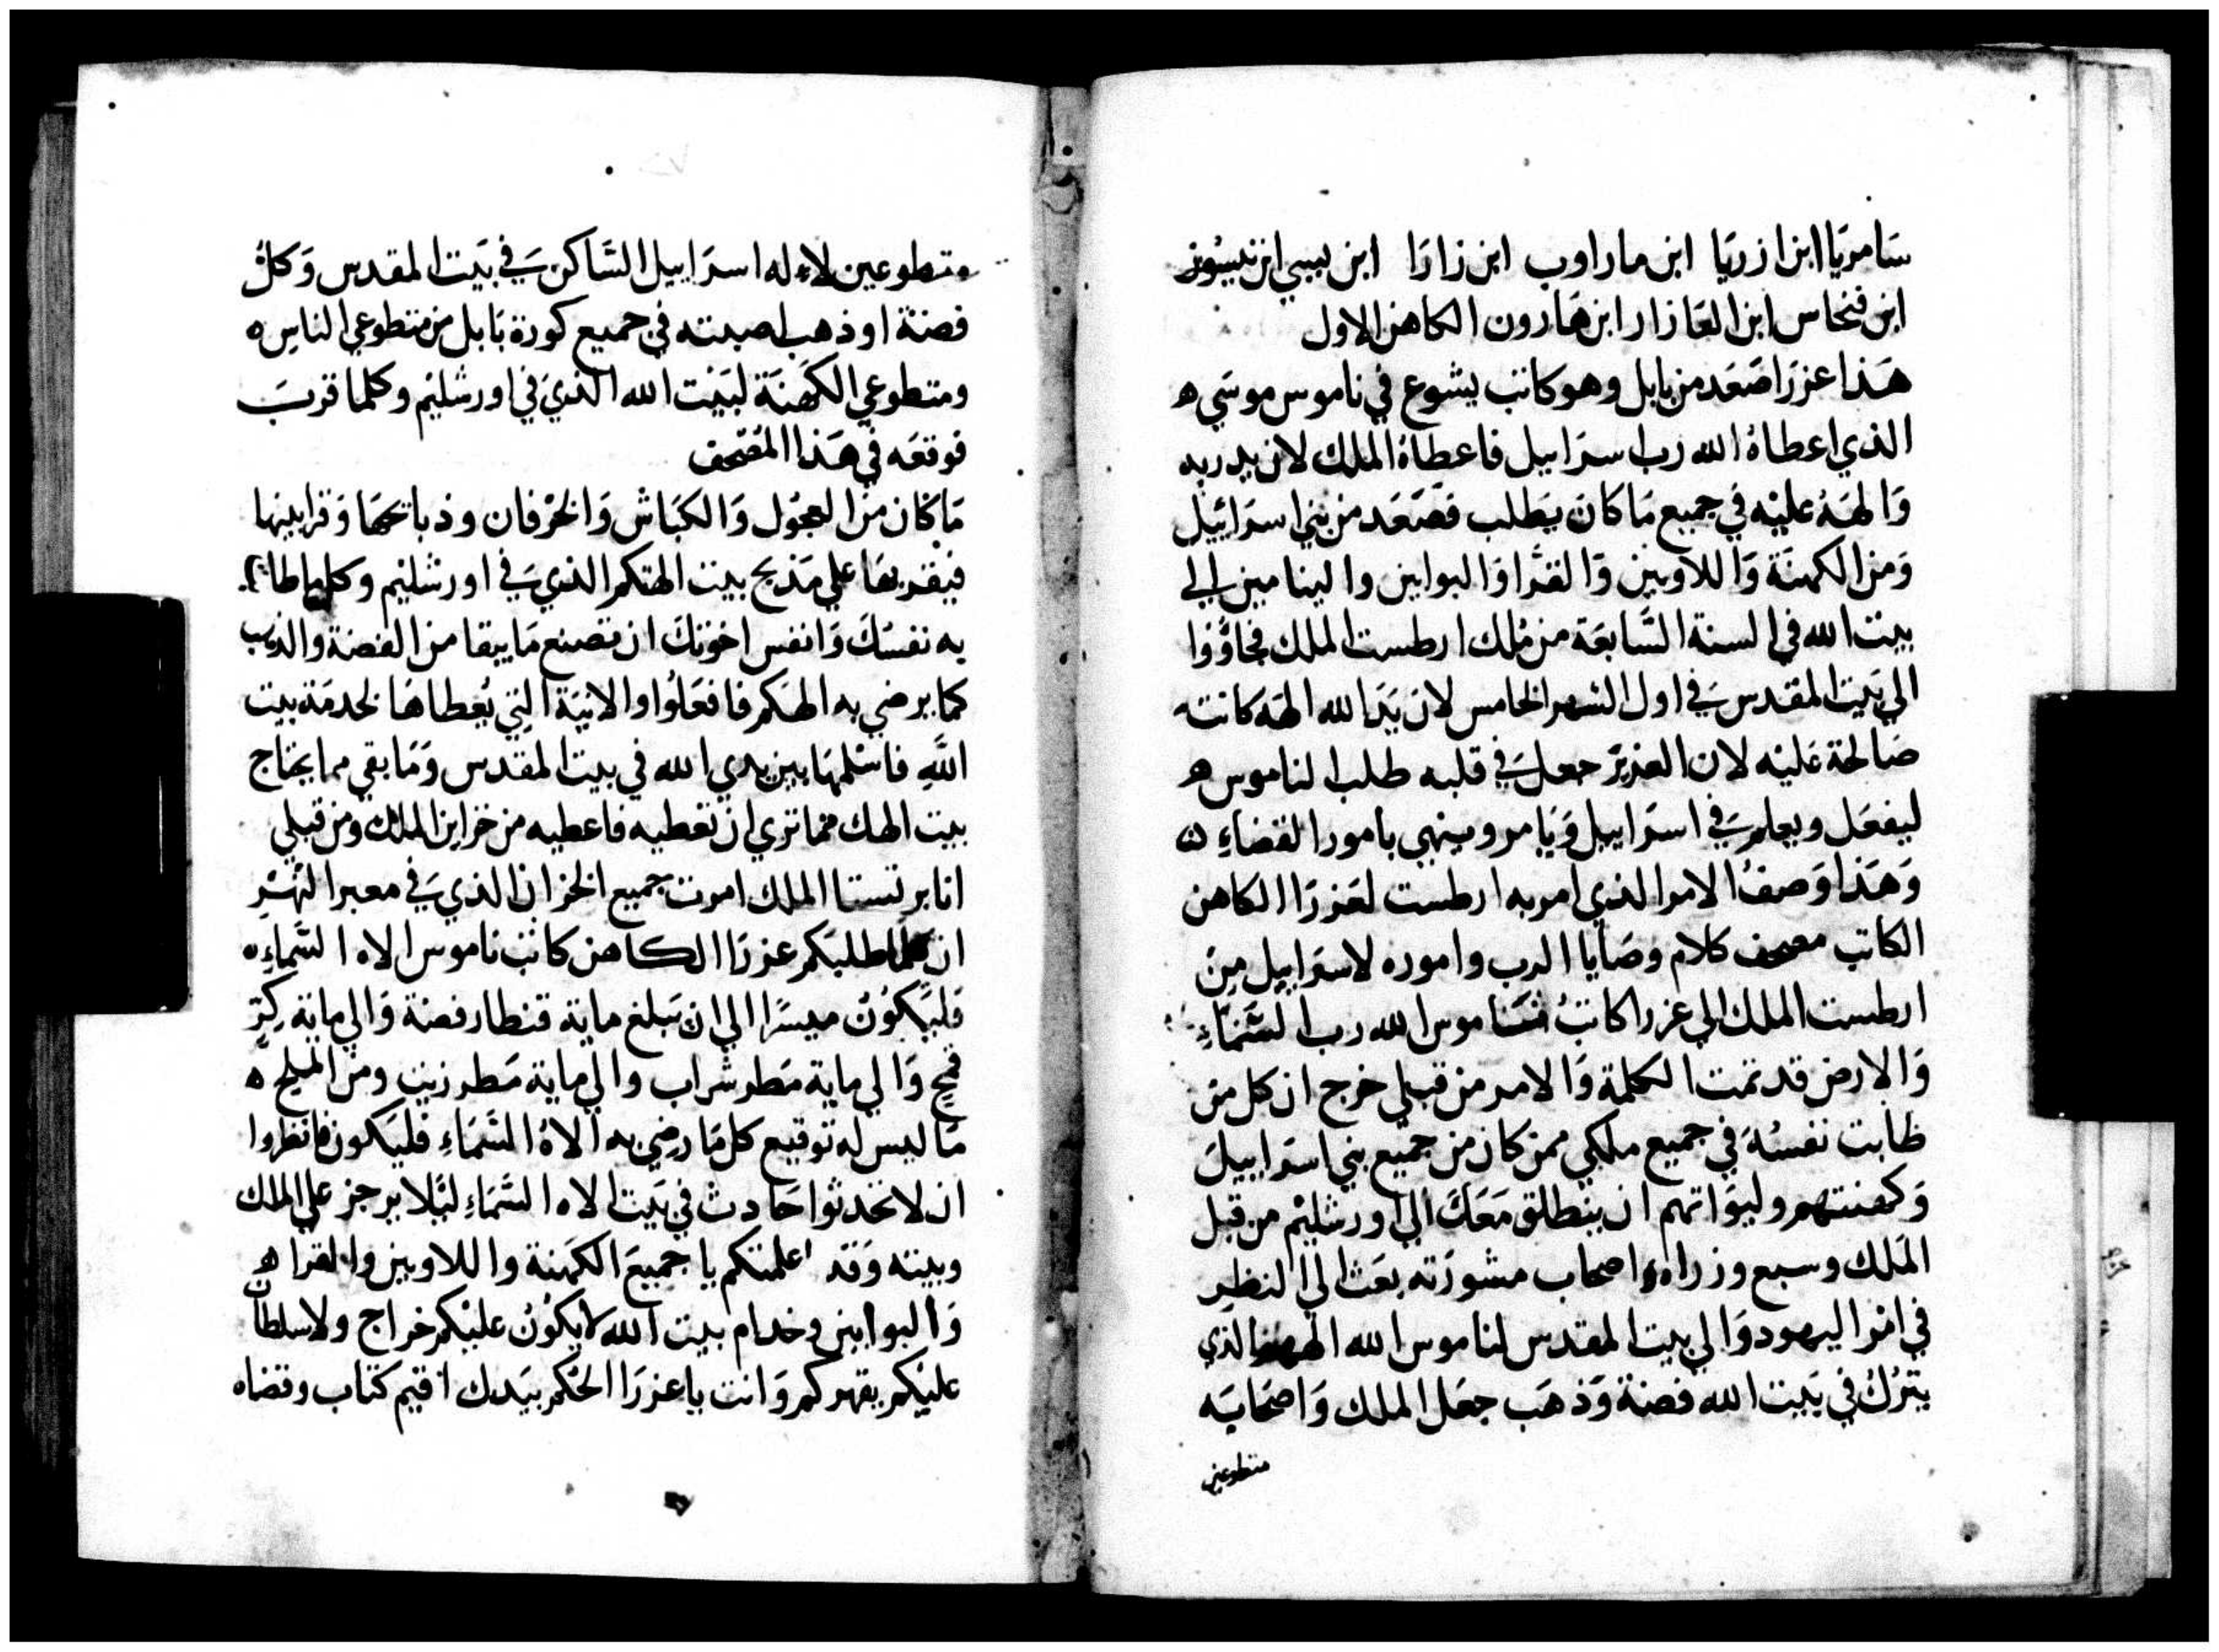 سَامريَا ابن ازريَا ابن ماراوب ابن زارَا ابن بيسي ابن
ابن فنحاس ابن العَازار ابن هَارون الكاهن الاول
هَذا عزرَا صَعَد من بابل وهو كاتب يشوع في ناموس موسَي ه
الذي اعطاهُ الله رب اسرَاييل فاعطاهُ الملك لان يد ربه
وَالهَهُ عليْه في جميع مَا كانَ يَطلب فصَعَد من بني اسرَائيل
وَمن الكهنَة وَاللاويين وَالقرَّا وَالبوابين والينامين الي
بيت الله في السنة السَّابعَة من مُلك ارطست الملك فجاؤُوا
الي بَيت المقدس في اول الشهر الخامس لان يَد الله الهَه كانت
صَالحة عَليْه لان العَزيرَ جعل في قلبه طلب الناموس ه
ليفعَل ويعلم في اسرَاييل وَيَامر وينهي بامور القضاءِ
وَهَذا وَصفُ الامر الذي امر به ارطست لعَزرَا الكاهن
الكاتب مصحف كلام وصَايا الرب واموره لاسرَاييل مِن
ارطست الملك الي عزرا كاتبُ ناموس الله رب السَّمَاءِ
وَالارض قد تمت الكلمة وَالامر من قبلي خرج ان كل من
طابت نفسُهُ في جميع ملكي ممن كان من جميع بني اسرَاييلَ
وَكهنتهم وليوَاتهم ان ينطلق مَعَكَ الي اورشليْم من قبل
المَلك وسبع وزراه واصحاب مشورَته بعَث الي النظر
في امْر اليهود وَالي بيت المقدس لناموس الله الذي
يترُك في بَيت الله فضة وَذهَب جعَل الملك وَاصحَابَه
متطوعين
متطوعين لاله اسرَاييل السَّاكن في بَيت المقدس وَكلُ
فضة او ذهب اصبته في جميع كورة بَابل من متطوعي الناسِ ه
ومتطوعي الكهَنَة لبَيْت الله الذيَ في اورشليْم وكلما قربَ
فوقعَه في هَذا المُصْحف
مَا كان من العجُول وَالكبَاش وَالخرْفان وذبائحهَا وَقرابينها
فيقربهَا علي مَذبح بيت الهتكم الذي في اورشليْم وكل ما طا
به نفسُكَ وَانفس اخوتكَ ان تصنع مَا يبقا من الفضة والذهب
كما يرضي به الهَكم فافعَلُوا والانيَة التي يُعطاهَا لخدمَة بيت
اللَّهِ فاسْلمهَا بين يدي الله في بيت المقدس وَمَا بقي مما يحتاج
بيت الهك مما تري ان تعْطيه فاعطيه من خزاين الملك ومن قبلي
انا برتستا الملك امرت جميع الخزان الذي في معبر النَهْرِ
ان كلما طلبَكم عزرَا الكاهن كاتبْ ناموس الاه السَّماءِ ه
فَليَكُونُ ميسرًا الي ان تبلغ ماية قنطار فضة وَالي ماية كرِّ
قمح وَالي ماية مَطر شراب والي ماية مَطر زيت ومن الملح ه
مَا ليس له توقيع كل مَا رضي به الاهُ السَّمَاءِ فليَكون فانظروا
ان لا تحْدثوا حَادث في بَيت الاه السَّمَاءِ ليَلا يرجز علي الملك
وبيته وَقد اعلمتكم يا جميعَ الكهَنة واللاويين والقرا ه
وَالبوابين وخدام بيت الله لا يكوُنُ عليْكم خراج ولا سلطان
عليْكم يقهركم وَانت يا عزرَا الحُكم بيَدك اقيم كتاب وقضاه